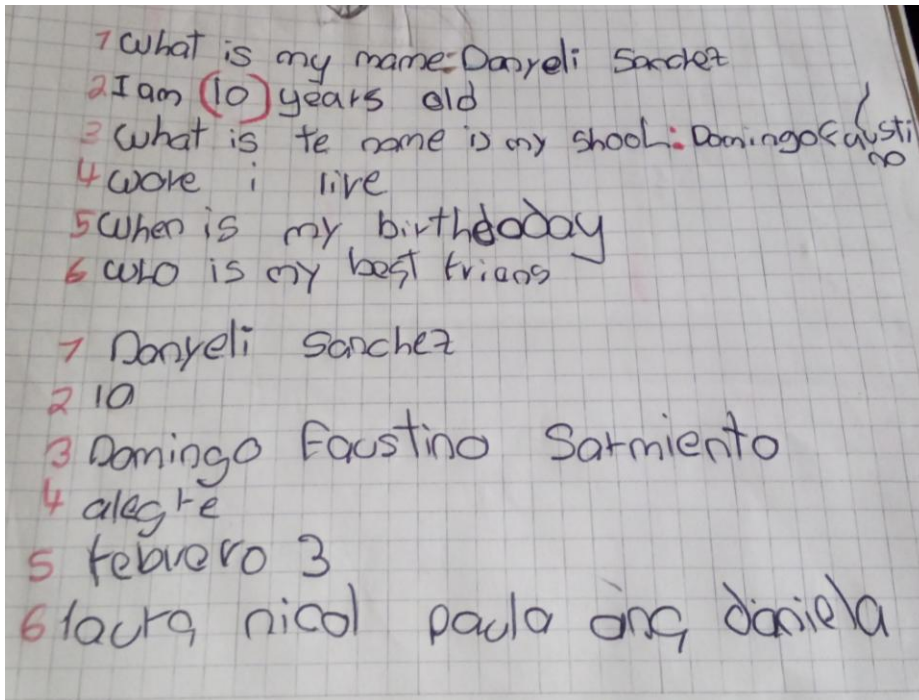 1 What is my mame: Danyeli Sanchez
2 I am (10) years old
3 What is te name is my shool: Domingo Faustino
4 wore i live
5 When is my birthdoday
6 who is my best frians
1 Danyeli Sanchez
2 10
3 Domingo Faustino Sarmiento
4 alegre
5 febrero 3
6 laura nicol paula ana daniela